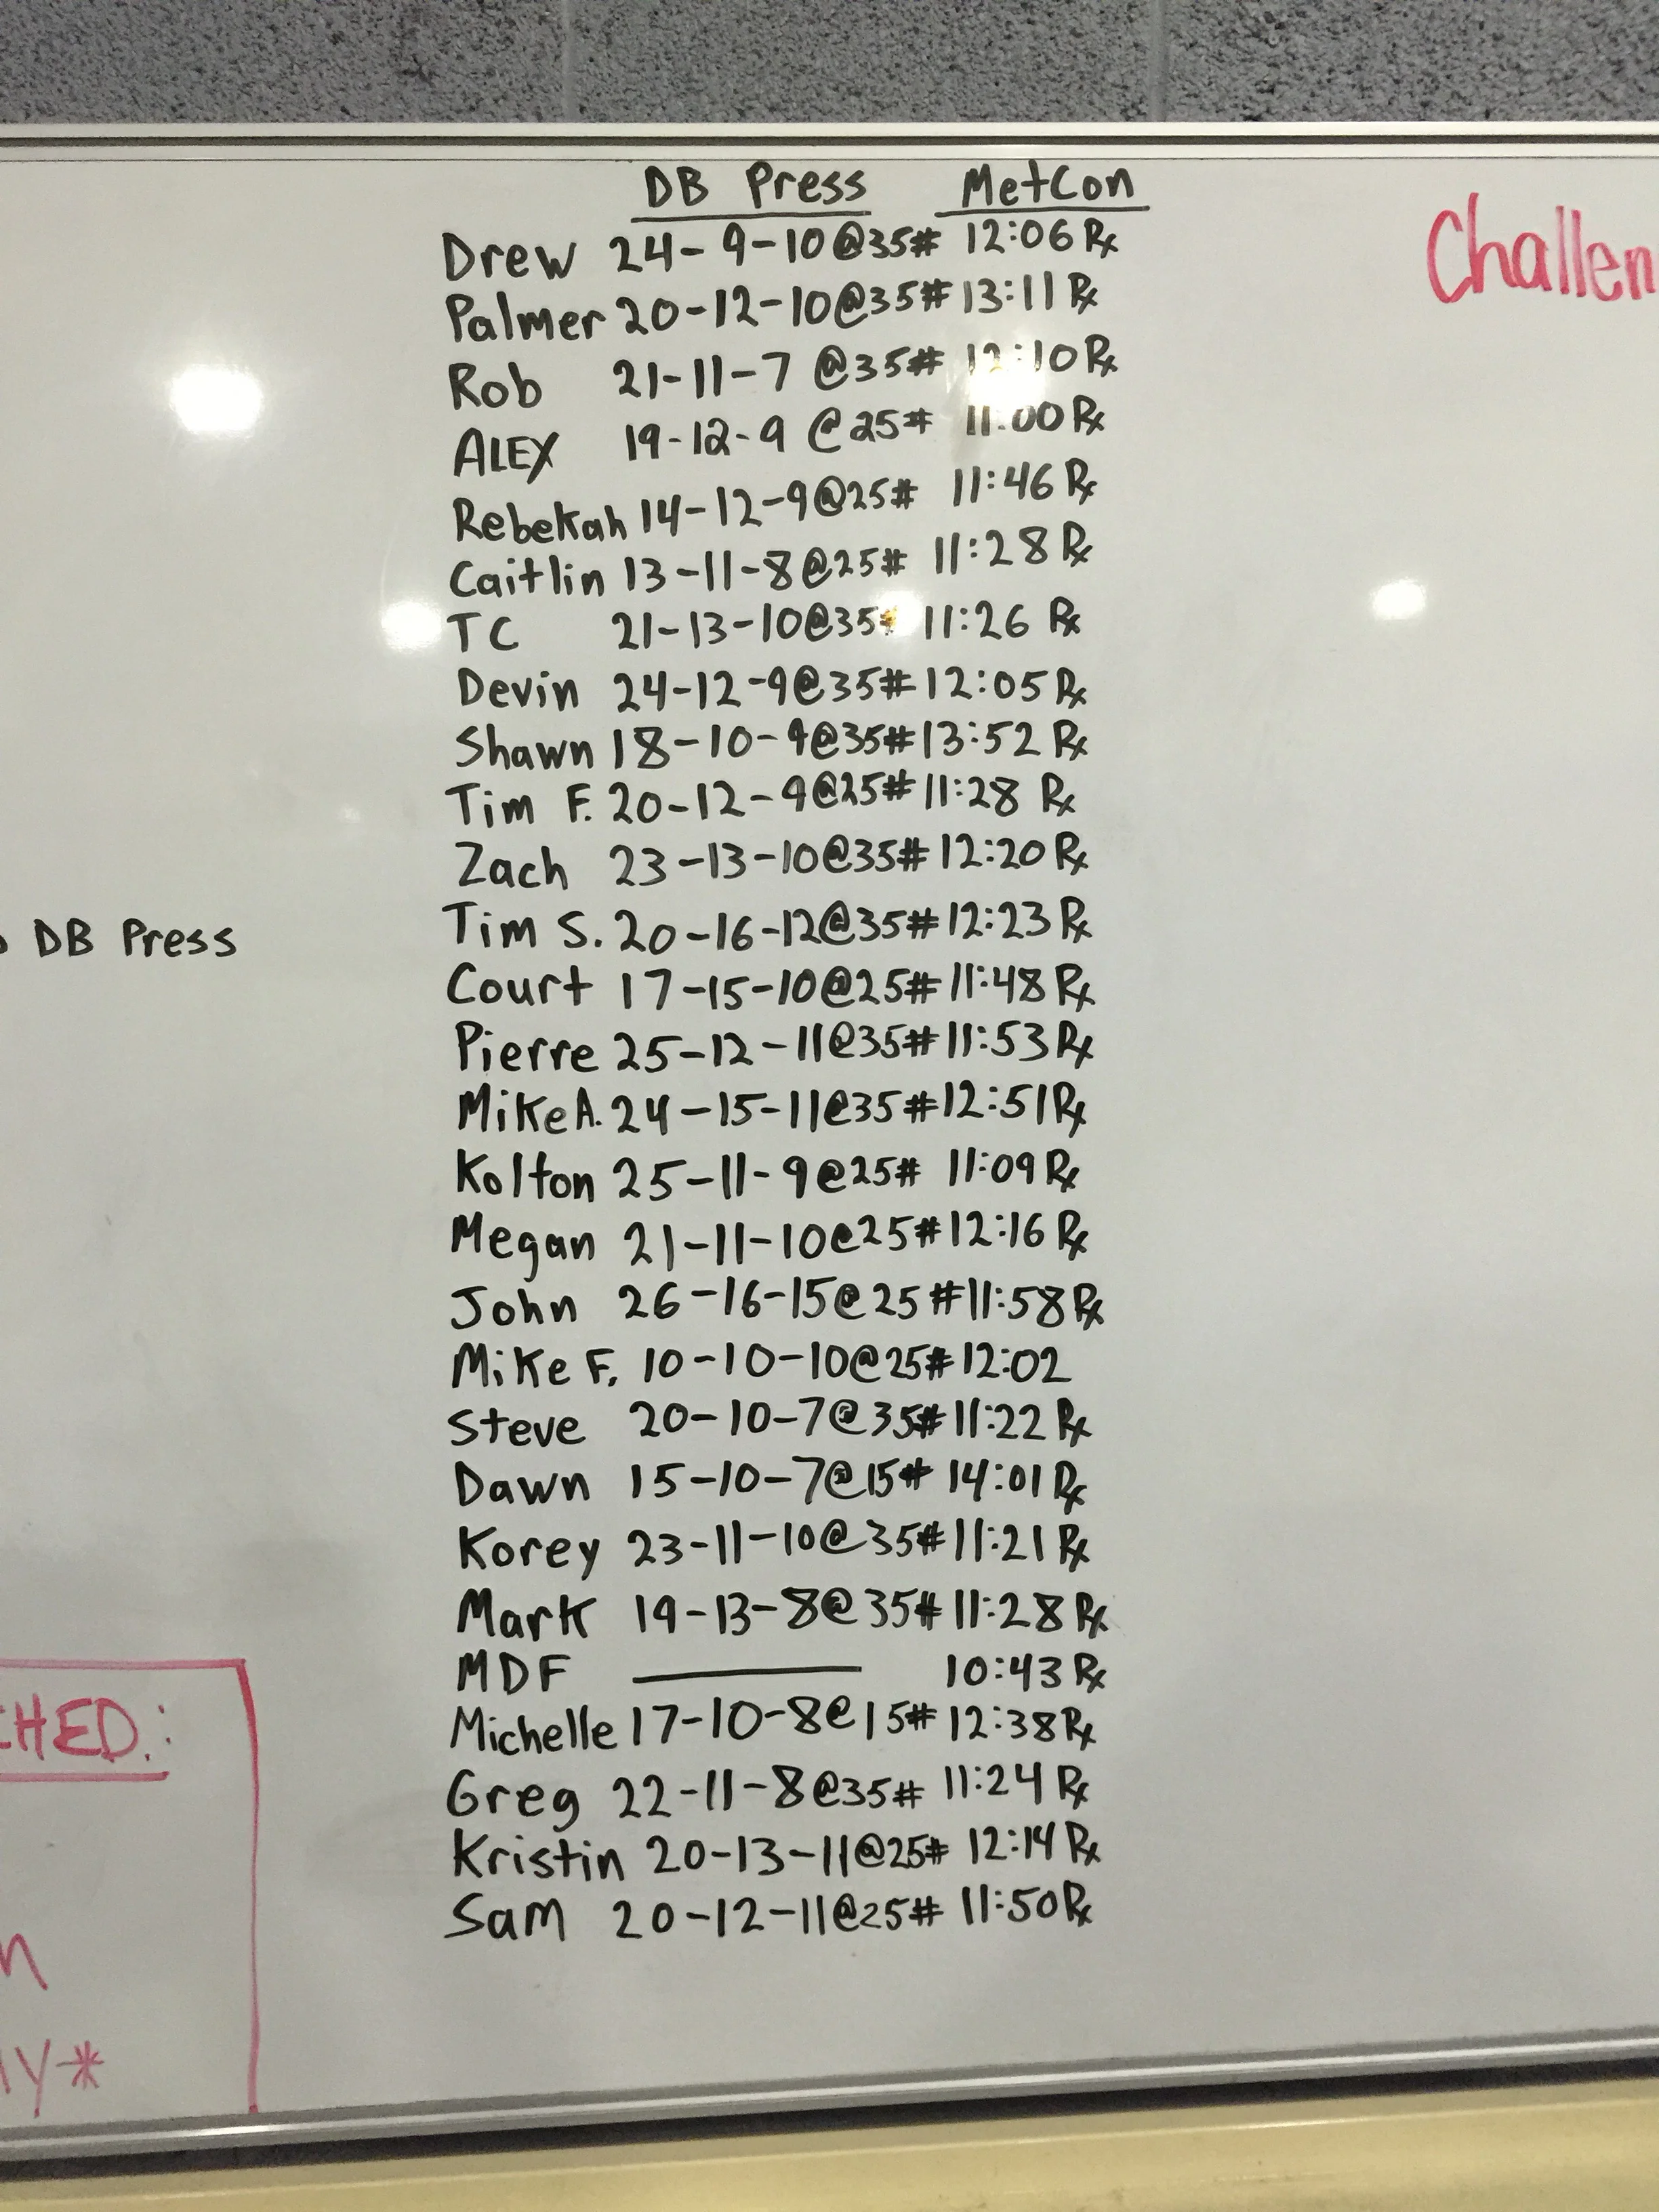 DB Press MetCon
Challen
Drew 24-9-10@35# 12:06 Rx
Palmer 20-12-10@35# 13:11 Rx
Rob 21-11-7 @35# 12:10 Rx
ALEX 19-12-9 @25# 11:00 Rx
Rebekah 14-12-9@25# 11:46 Rx
Caitlin 13-11-8@25# 11:28 Rx
TC 21-13-10@35# 11:26 Rx
Devin 24-12-9@35# 12:05 Rx
Shawn 18-10-9@35# 13:52 Rx
Tim F. 20-12-9@25# 11:28 Rx
Zach 23-13-10@35# 12:20 Rx
Tim S. 20-16-12@35# 12:23 Rx
DB Press
Court 17-15-10@25# 11:48 Rx
Pierre 25-12-11@35# 11:53 Rx
Mike A. 24-15-11@35# 12:51 Rx
Kolton 25-11-9@25# 11:09 Rx
Megan 21-11-10@25# 12:16 Rx
John 26-16-15@25# 11:58 Rx
Mike F. 10-10-10@25# 12:02
Steve 20-10-7@35# 11:22 Rx
Dawn 15-10-7@15# 14:01 Rx
Korey 23-11-10@35# 11:21 Rx
Mark 19-13-8@35# 11:28 Rx
MDF —— 10:43 Rx
Michelle 17-10-8@15# 12:38 Rx
Greg 22-11-8@35# 11:24 Rx
Kristin 20-13-11@25# 12:14 Rx
Sam 20-12-11@25# 11:50 Rx
CHED.: